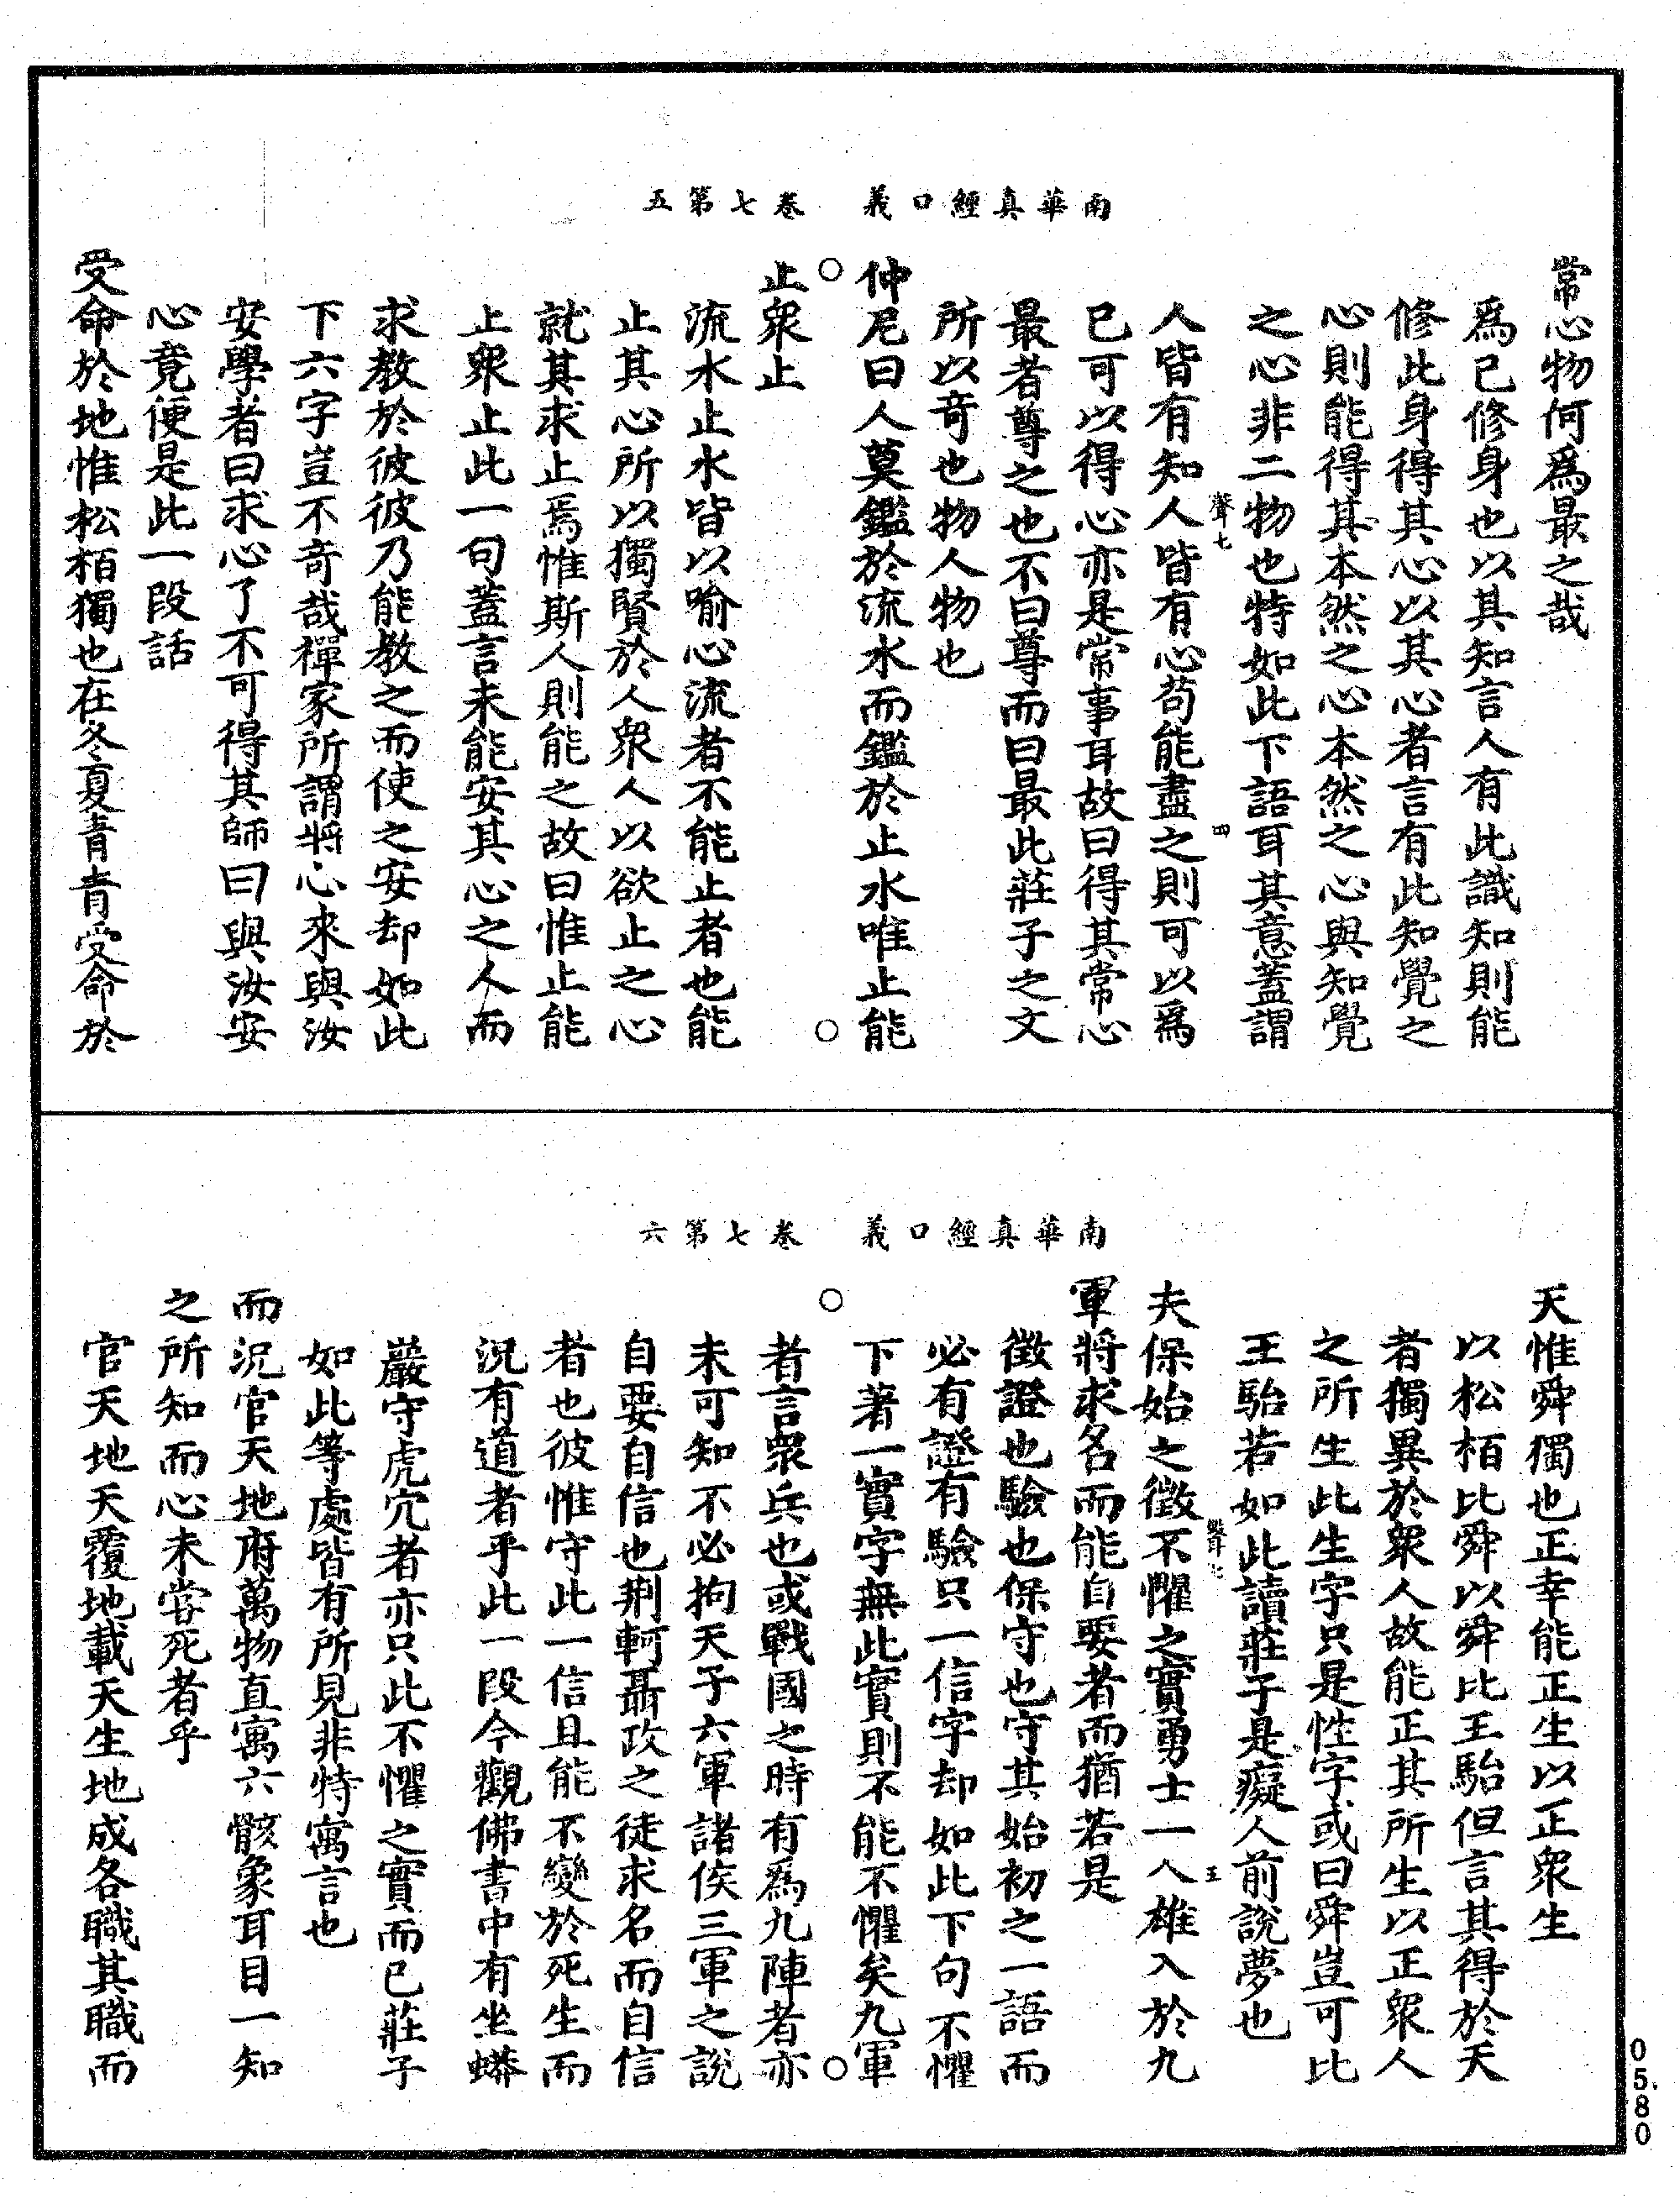 南華真經口義　卷七第五
常心物何為最之哉
為已修身也以其知言人有此識知則能
修此身得其心以其心者言有此知覺之
心則能得其本然之心本然之心與知覺
之心非二物也特如此下語耳其意蓋謂
聲七　四
人皆有知人皆有心苟能盡之則可以為
已可以得心亦是常事耳故曰得其常心
最者尊之也不曰尊而曰最此莊子之文
所以奇也物人物也
仲尼曰人莫鑑於流水而鑑於止水唯止能
止眾止
流水止水皆以喻心流者不能止者也能
止其心所以獨賢於人眾人以欲止之心
就其求止焉惟斯人則能之故曰惟止能
止眾止此一句蓋言未能安其心之人而
求教於彼彼乃能教之而使之安却如此
下六字豈不奇哉禪家所謂將心來與汝
安學者曰求心了不可得其師曰與汝安
心竟便是此一段話
受命於地惟松栢獨也在冬夏青青受命於
南華真經口義　卷七第六
天惟舜獨也正幸能正生以正眾生
以松栢比舜以舜比王駘但言其得於天
者獨異於眾人故能正其所生以正眾人
之所生此生字只是性字或曰舜豈可比
王駘若如此讀莊子是癡人前說夢也
聲七　五
夫保始之徵不懼之實勇士一人雄入於九
軍將求名而能自要者而猶若是
徵證也驗也保守也守其始初之一語而
必有證有驗只一信字却如此下句不懼
下著一實字無此實則不能不懼矣九軍
者言眾兵也或戰國之時有為九陣者亦
未可知不必拘天子六軍諸侯三軍之說
自要自信也荆軻聶政之徒求名而自信
者也彼惟守此一信且能不變於死生而
況有道者乎此一段今觀佛書中有坐蟒
巖守虎穴者亦只此不懼之實而已莊子
如此等處皆有所見非特寓言也
而況官天地府萬物直寓六骸象耳目一知
之所知而心未嘗死者乎
官天地天覆地載天生地成各職其職而
0580